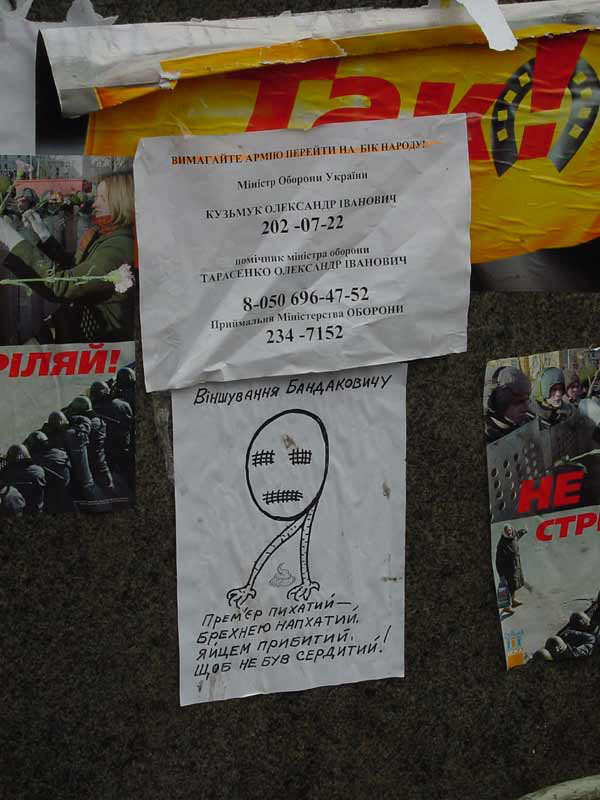 Так!
ВИМАГАЙТЕ АРМІЮ ПЕРЕЙТИ НА БІК НАРОДУ!
Міністр Оборони України
КУЗЬМУК ОЛЕКСАНДР ІВАНОВИЧ
202 -07-22
помічник міністра оборони
ТАРАСЕНКО ОЛЕКСАНДР ІВАНОВИЧ
8-050 696-47-52
Приймальня Міністерства ОБОРОНИ
234 -7152
РІЛЯЙ!
Віншування Бандаковичу
Прем'єр пихатий—
Брехнею напхатий,
Яйцем прибитий,
Щоб не був сердитий!
НЕ
СТРІ